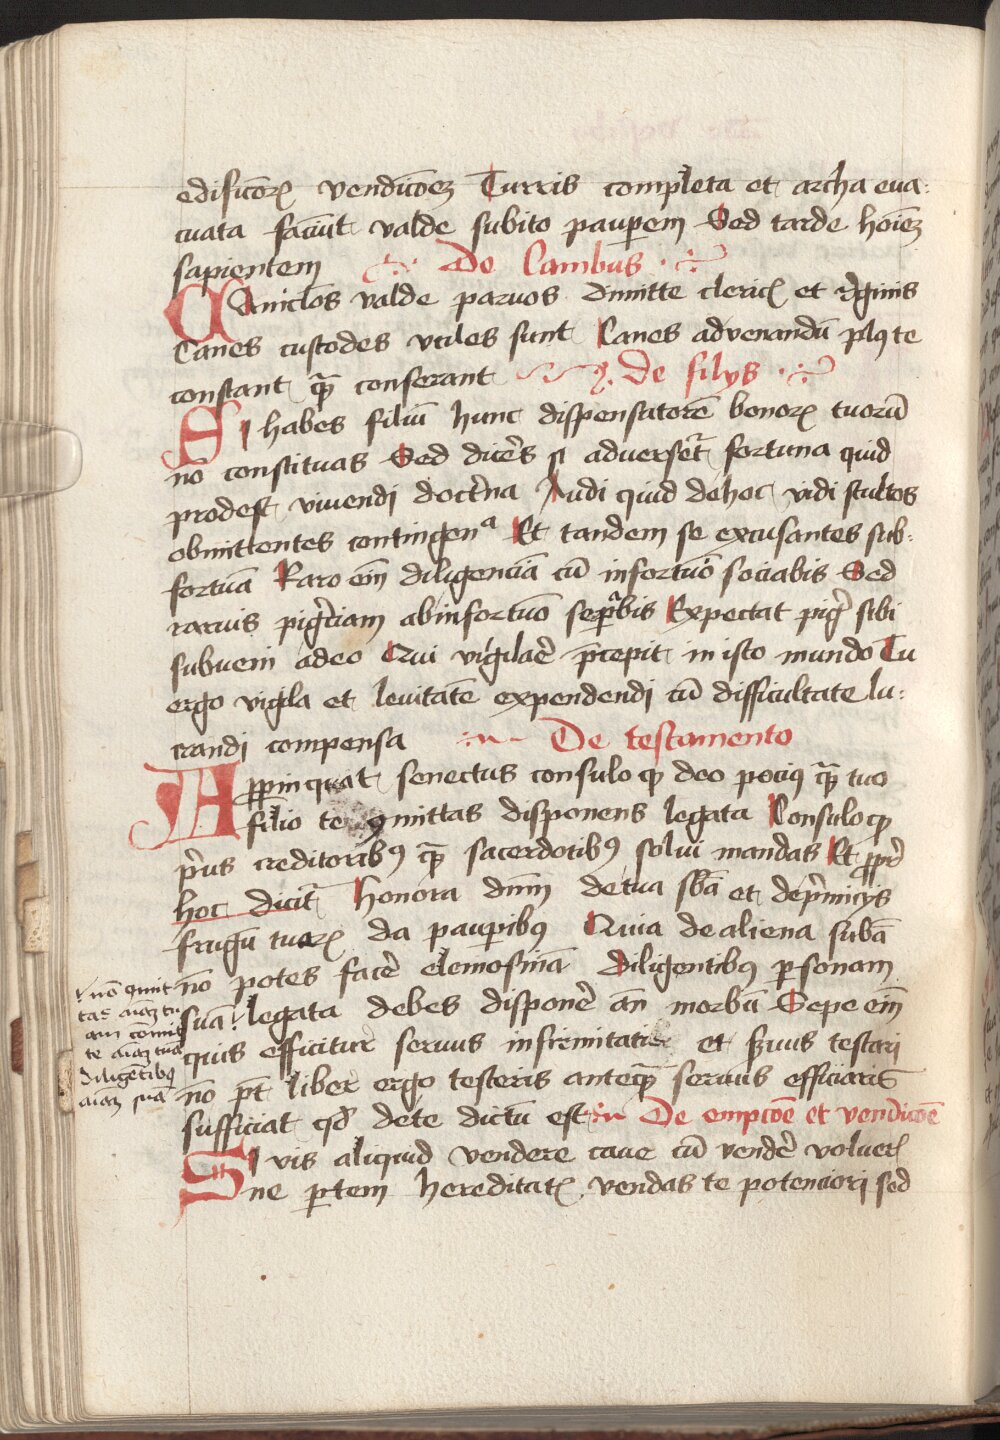 edificōꝝ vendicōeꝫ Turris completa et archa eua:
cuata faciūt valde subito paup̱em Sed tarde hoīeꝫ
sapientem De Canibus
Caniclōs valde paruos dimitte cleric et regīnis
Canes custodes vtiles sunt Canes ad venandū plꝰ te
constant q̄ꝫ conferant De filijs
SI habes filiū hunc dispensatorē bonoꝝ tuorū
nō constituas Sed dicēs si adverset̄ fortuna quid
prodest vivendj doctrīna Audi quid de hoc vidi stultos
obmittentes contingenᵃ Et tandem se excusantes sub:
fortuā Raro eīm diligenciā cū infortuō sociabis Sed
rarius piḡciam ab infortuō sep̱abis Expectat piḡ sibi
subueīri a deo Qui vigilaē p̄cepit in isto mundo Tu
ergo vigila et leuitatē expendendj cū difficultate lu:
crandi compensa De testamento
Ap̱p̱inquat senectus consulo ꝙ deo pociꝰ q̄ꝫ tuo
filio te ꝯmittas disponens legata Consulo ꝙ
p̄us creditoribꝰ q̄ꝫ sacerdotibꝰ solui mandas Et ꝓpt̄
hoc dicit̄ Honora dn̄m de tua sb̄a et de p̄micijs
frugū tuoꝝ da paup̱ibꝰ Quia de aliena subā
nō potes facē elemosīnā Diligentibꝰ p̱sonam
suā legata debes disponē an̄ morbū Sepe eīm
quis efficitur seruus infirmitatis et s̄uus testari
nō p̄t liber ergo testeris anteq̄ꝫ seruus efficiaris
sufficiat qđ de te dictū est De empcōe et vendicōe
SI vis aliquid vendere caue cū vendē volueꝝ
ne p̱tem hereditatꝭ vendas te potenciorj sed
nō ꝯmit
tas aīaꝫ tu
am cōmit
te aīaꝫ tuā
diligētibꝰ
aīaꝫ suā